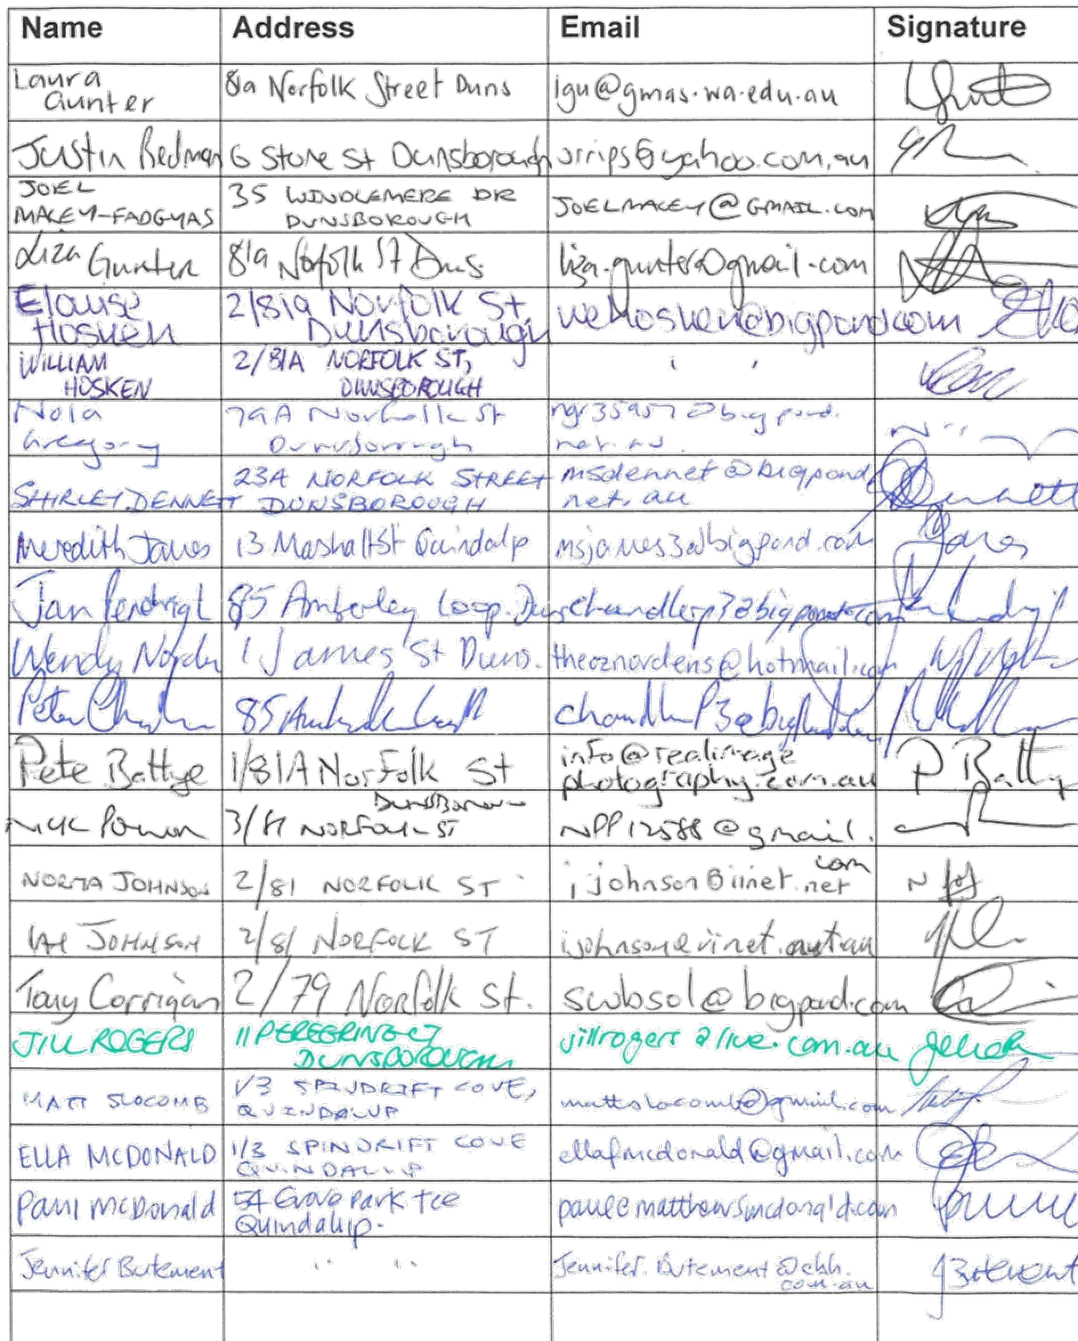 Name Address Email Signature
Laura Gunter 81a Norfolk Street Duns lgu@gmas.wa.edu.au
Justin Redman 6 Stone St Dunsborough jrrips@yahoo.com.au
JOEL MACEY-FADGYAS 35 WINDLEMERE DR DUNSBOROUGH JOELMACEY@GMAIL.COM
Liza Gunter 81a Norfolk St Duns liza.gunter@gmail.com
Elouise Hosken 2/81a Norfolk St Dunsborough wehosken@bigpond.com
WILLIAM HOSKEN 2/81A NORFOLK ST, DUNSBOROUGH " "
Nola Gregory 79A Norfolk St Dunsborough ngr35957@bigpond.net.au
SHIRLEY DENNETT 23A NORFOLK STREET DUNSBOROUGH msdennet@bigpond net.au
Meredith James 13 Marshall St Quindalp msjames3@bigpond.com
Jan 85 Amberley Loop. Duns chandlerp3@bigpond.com
Wendy Norden 1 James St Duns. theoznordens@hotmail.com
Peter 85
Pete Battye 1/81A Norfolk St info@realimage photography.com.au P Batty
Nick Power 3/81 NORFOLK ST Dunsborough NPP12588@gmail.com
NORMA JOHNSON 2/81 NORFOLK ST ijohnson@iinet.net
IAN JOHNSON 2/81 NORFOLK ST
Tony Corrigan 2/79 Norfolk St. swbsol@bigpond.com
JILL ROGERS 11 PEREGRINE CT DUNSBOROUGH jillrogers@live.com.au
MATT SLOCOMB 1/3 SPINDRIFT COVE, QUINDALUP mattslocomb@gmail.com
ELLA MCDONALD 1/3 SPINDRIFT COVE QUINDALUP ellafmcdonald@gmail.com
Paul McDonald 54 Grove Park Tce Quindalup. paul@matthewsmcdonald.com
Jennifer Butement " " Jennifer.Butement@chh.com.au JButement